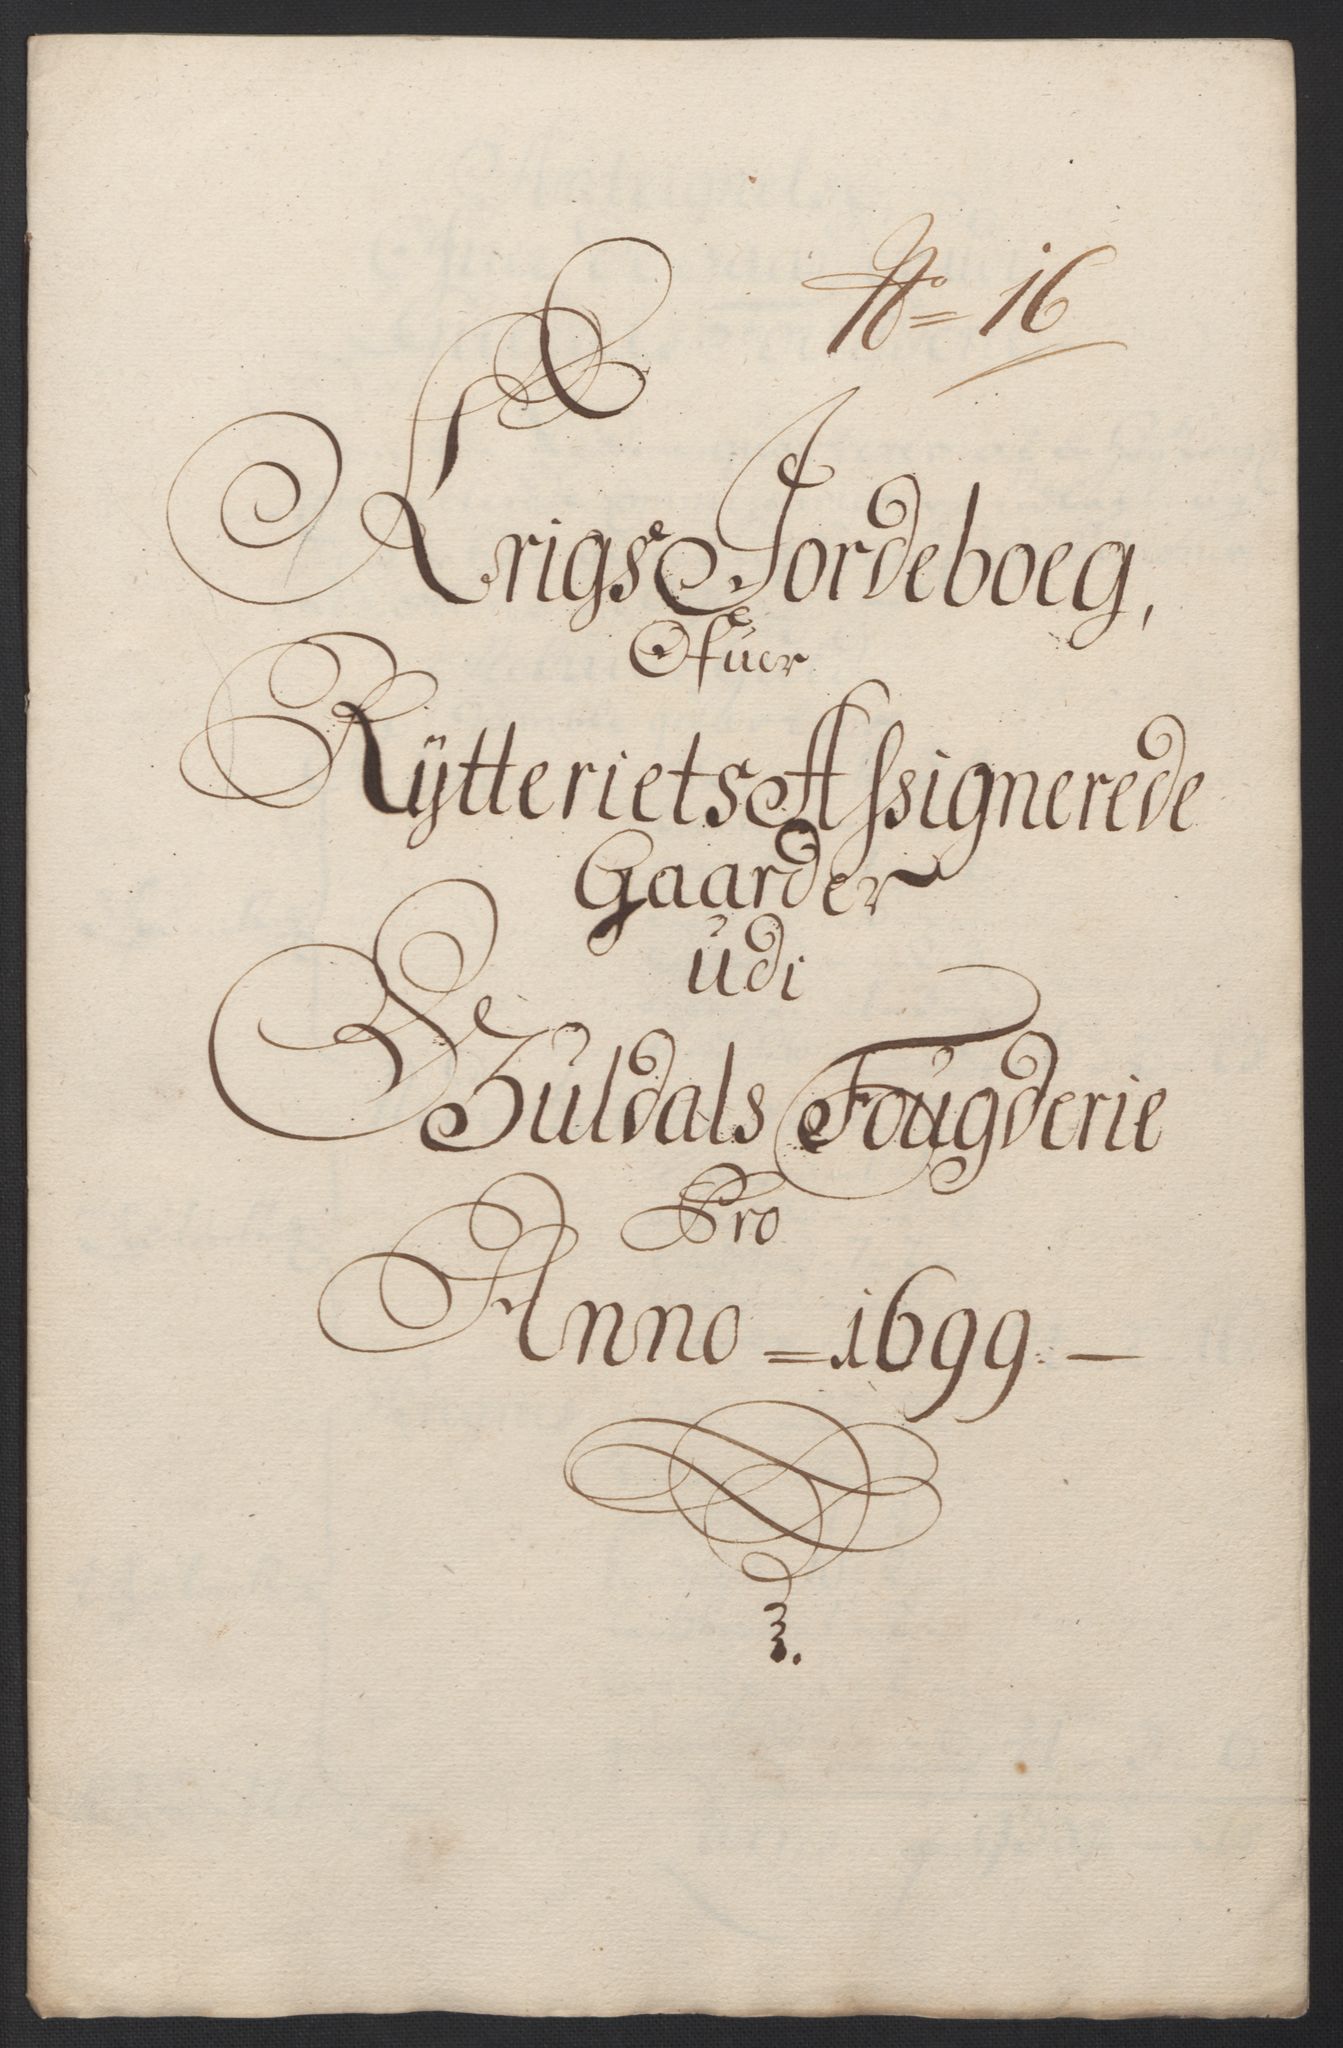 No= 16
Krigs Jordeboeg,
Ofuer
Rÿtteriets Assignerede
Gaarder
udi
Guldals Fougderie
Pro
Anno = 1699 –